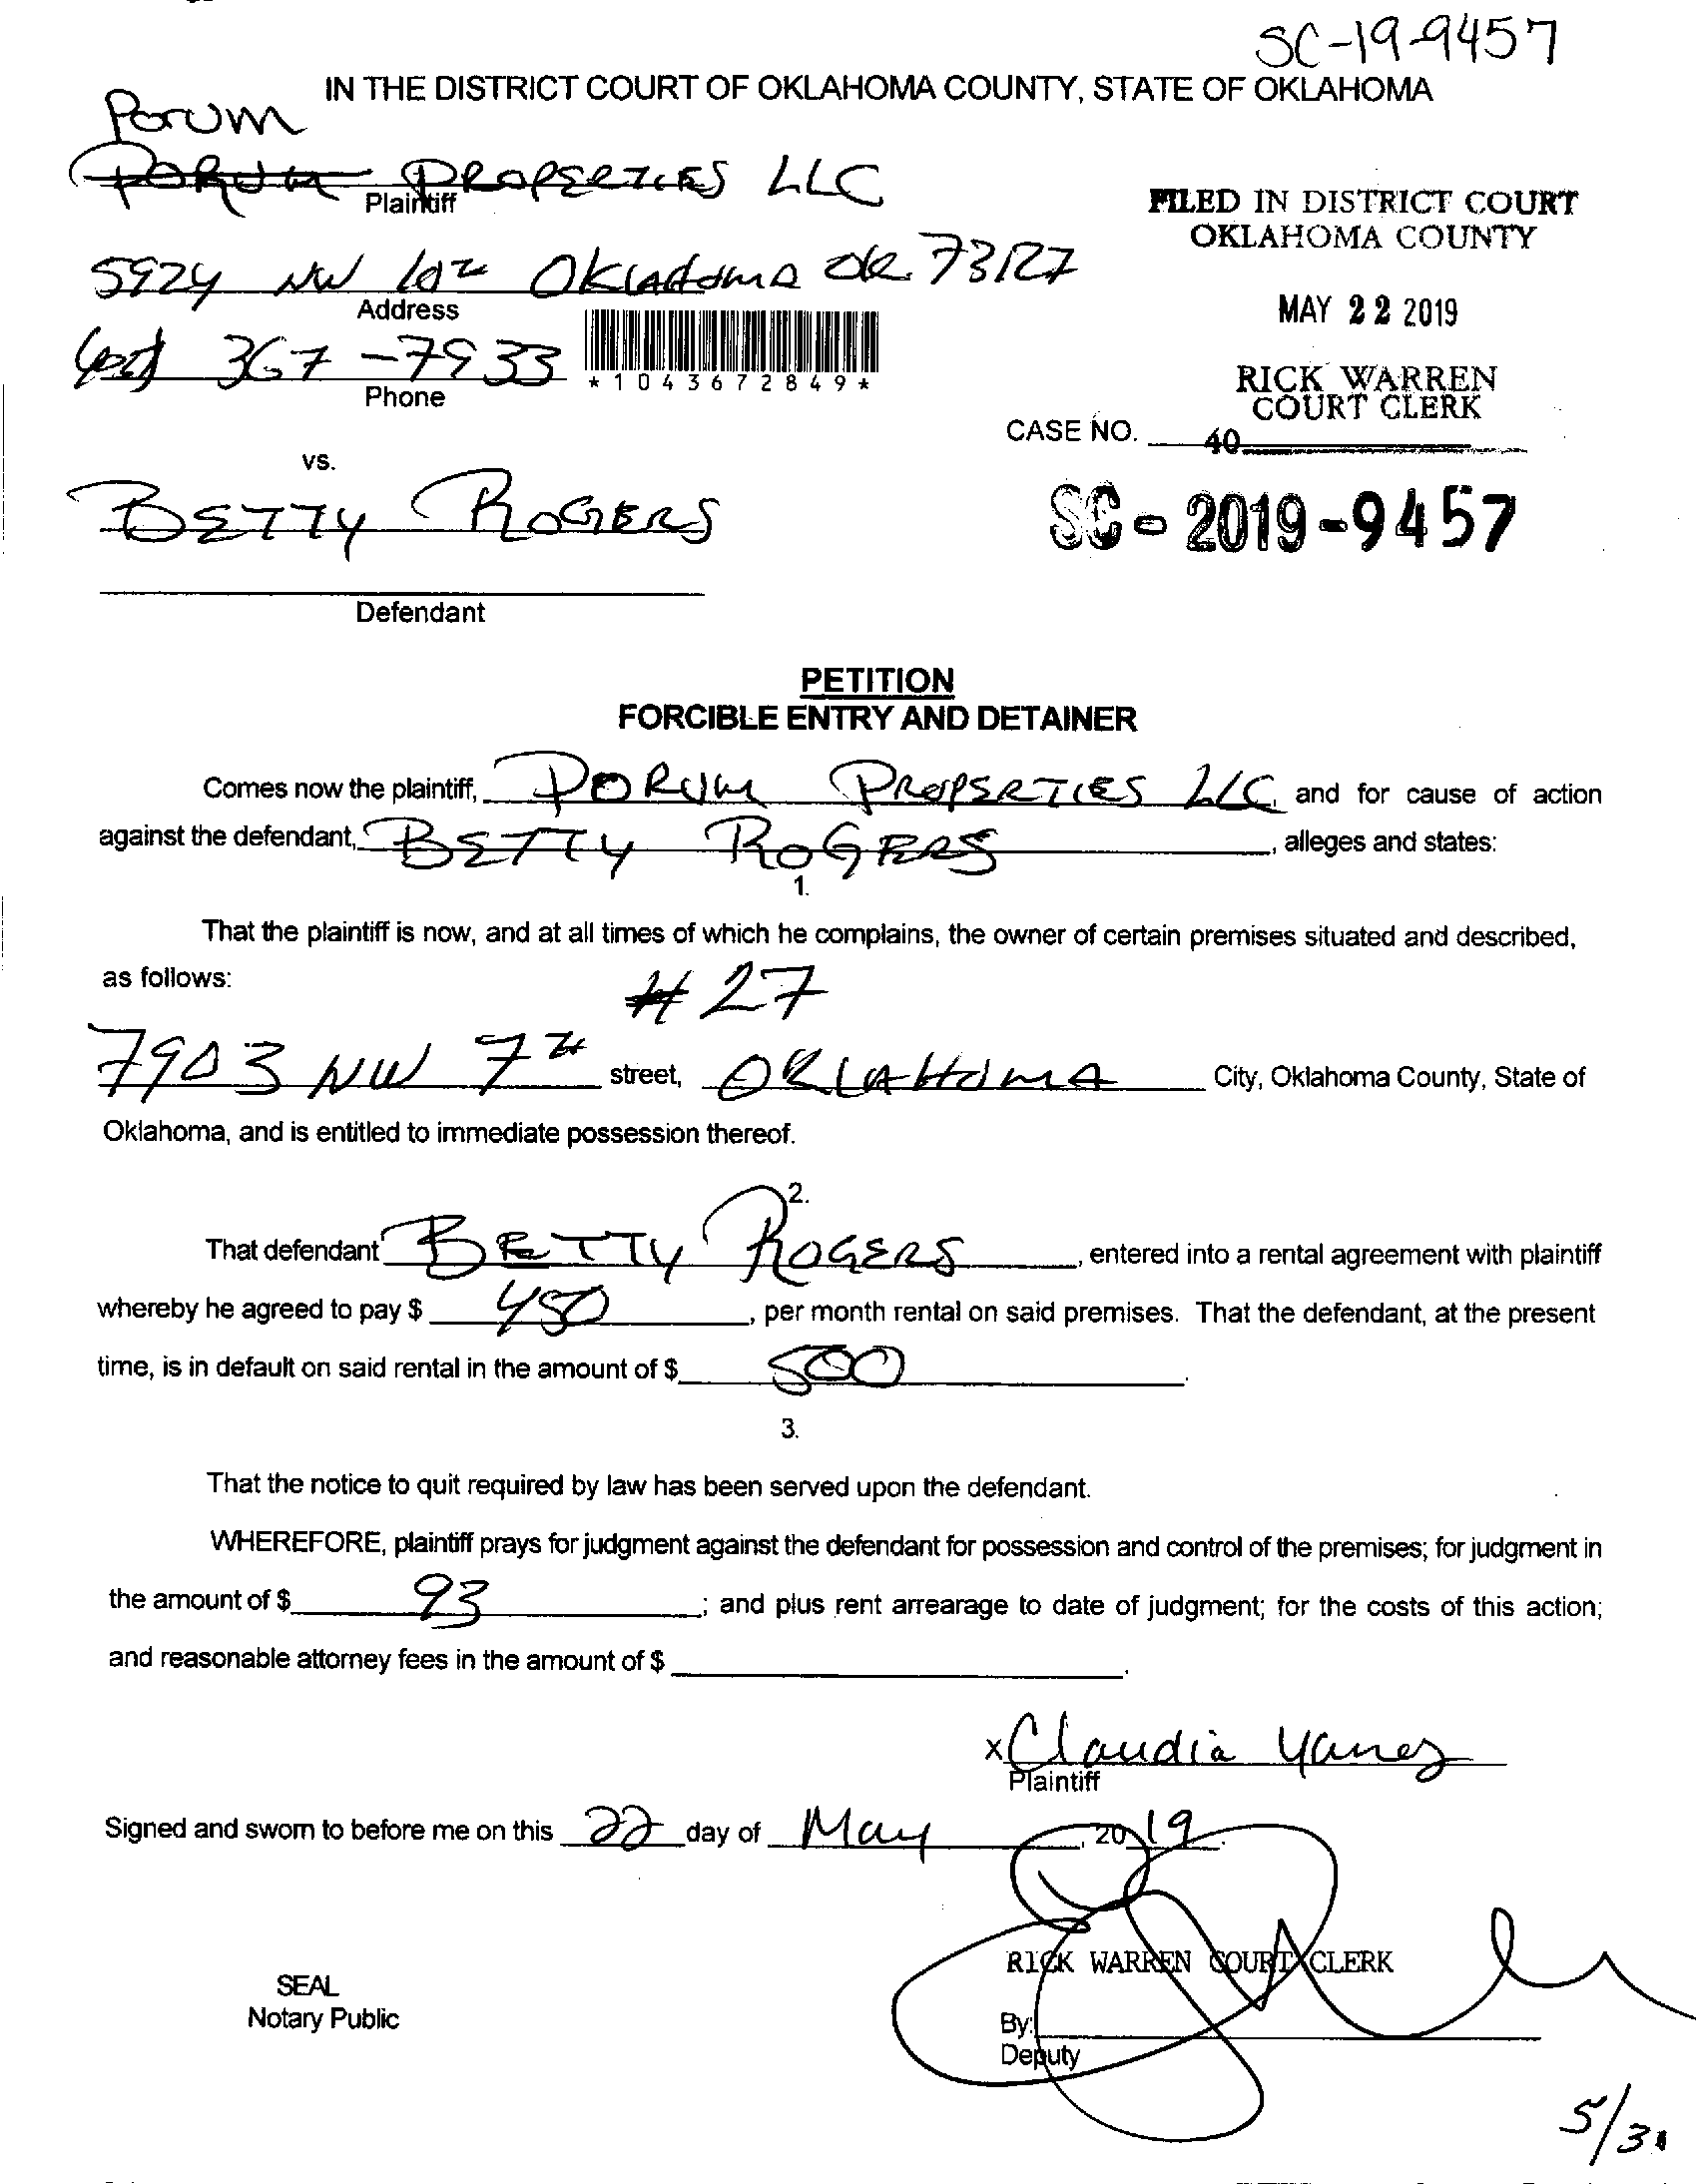 SC-19-9457
IN THE DISTRICT COURT OF OKLAHOMA COUNTY, STATE OF OKLAHOMA
Porum
PORUM PROPERTIES LLC
Plaintiff
FILED IN DISTRICT COURT
OKLAHOMA COUNTY
5924 NW 10th OKLAHOMA OK 73127
Address
MAY 22 2019
(405) 367-7933
Phone
*1043672849*
RICK WARREN
COURT CLERK
CASE NO.
40
vs.
BETTY ROGERS
SC-2019-9457
Defendant
PETITION
FORCIBLE ENTRY AND DETAINER
Comes now the plaintiff, PORUM PROPERTIES LLC, and for cause of action
against the defendant, BETTY ROGERS, alleges and states:
1.
That the plaintiff is now, and at all times of which he complains, the owner of certain premises situated and described,
as follows:
#27
7903 NW 7th street, OKLAHOMA City, Oklahoma County, State of
Oklahoma, and is entitled to immediate possession thereof.
2.
That defendant BETTY ROGERS, entered into a rental agreement with plaintiff
whereby he agreed to pay $ 450, per month rental on said premises. That the defendant, at the present
time, is in default on said rental in the amount of $ 500.
3.
That the notice to quit required by law has been served upon the defendant.
WHEREFORE, plaintiff prays for judgment against the defendant for possession and control of the premises; for judgment in
the amount of $ 93; and plus rent arrearage to date of judgment; for the costs of this action;
and reasonable attorney fees in the amount of $ .
x Claudia Yanez
Plaintiff
Signed and sworn to before me on this 22 day of May, 2019.
RICK WARREN COURT CLERK
SEAL
Notary Public
By:
Deputy